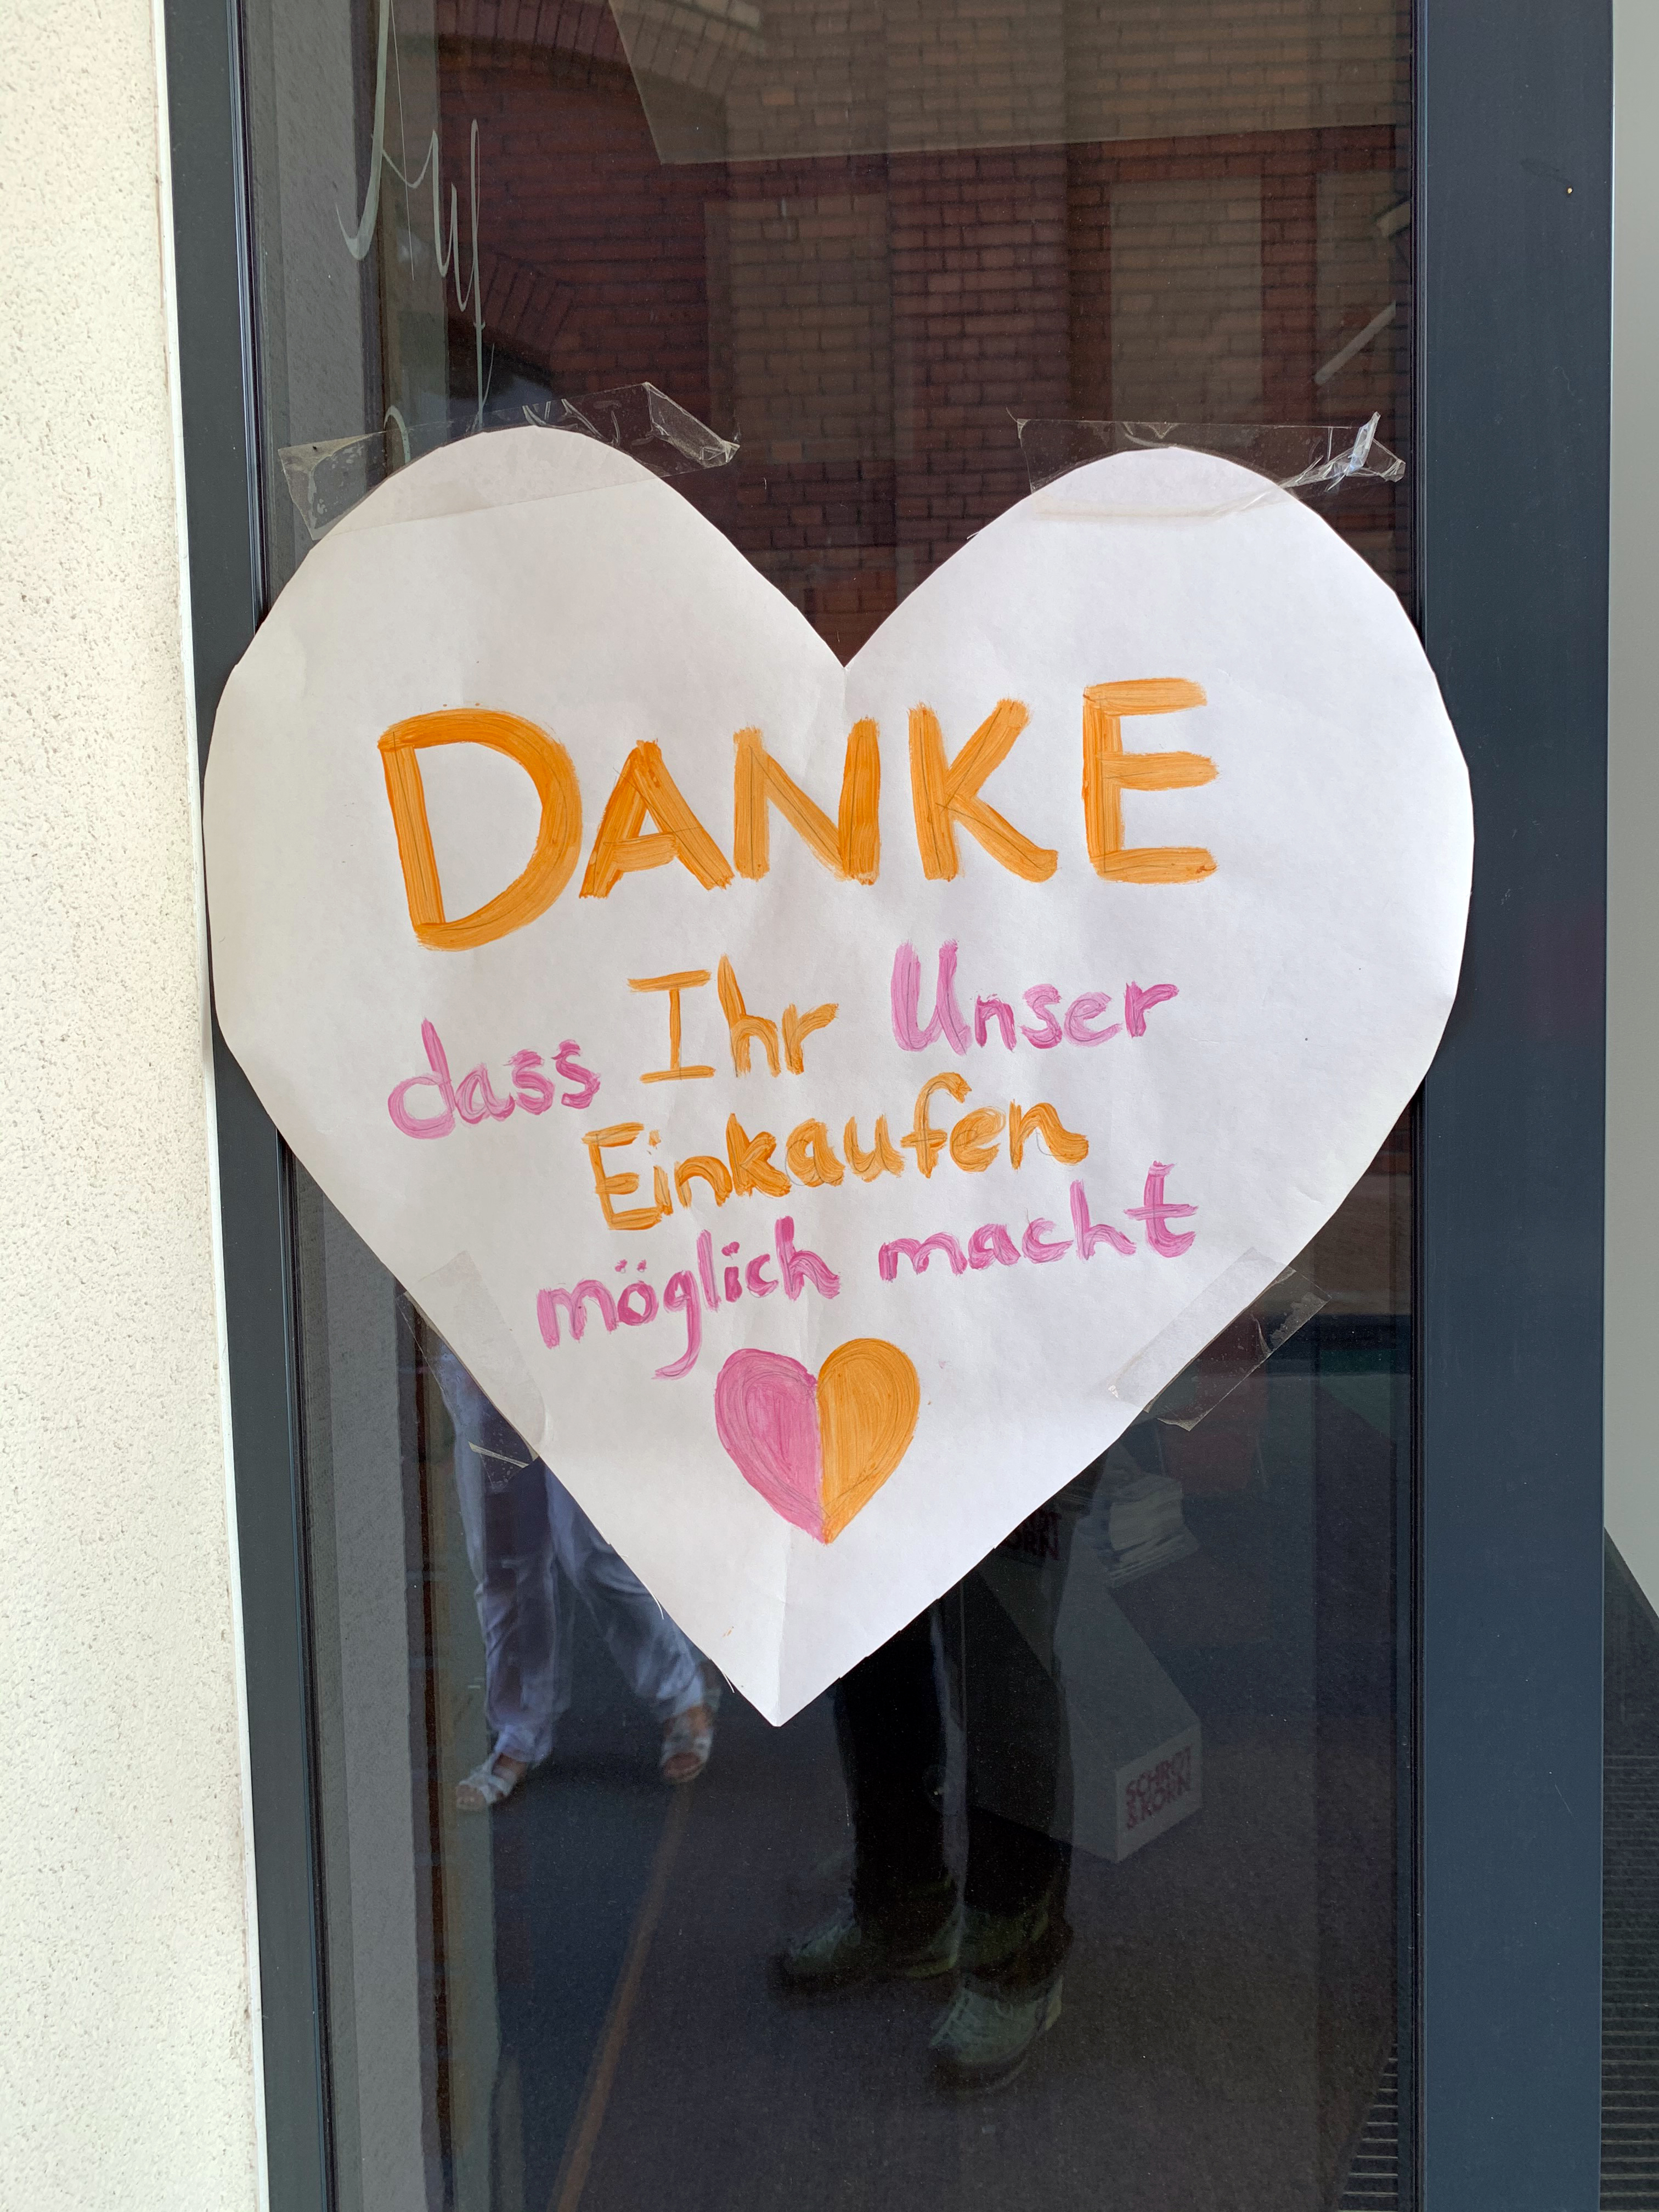 DANKE
dass Ihr Unser
Einkaufen
möglich macht
SCHROT
& KORN